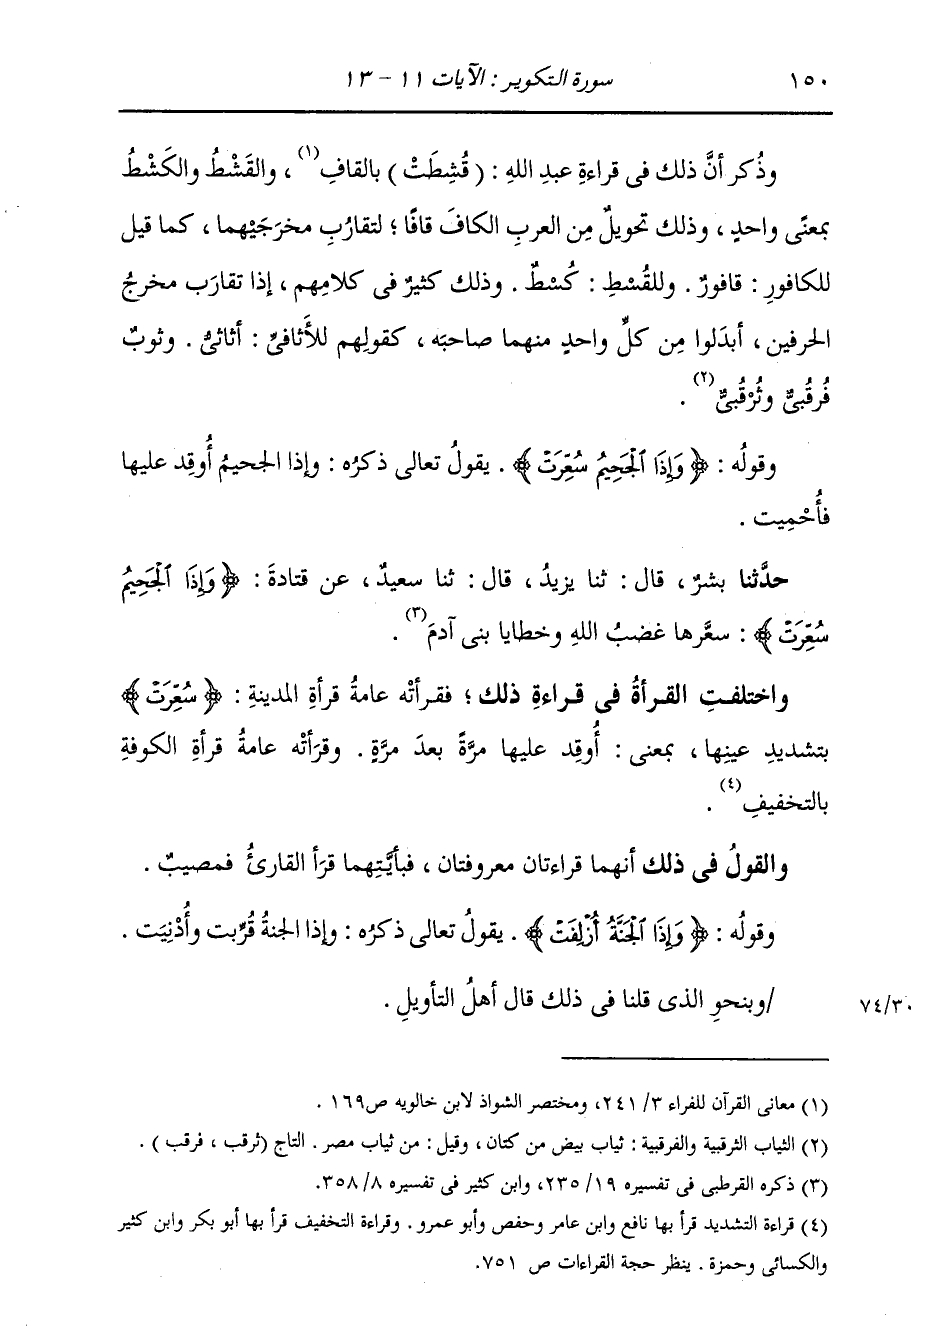 ١٥٠ سورة التكوير : الآيات ١١ - ١٣
وذُكر أنَّ ذلك فى قراءةِ عبدِ اللهِ : ( قُشِطَتْ ) بالقافِ(١) ، والقَشْطُ والكَشْطُ
بمعنًى واحدٍ ، وذلك تحويلٌ مِن العربِ الكافَ قافًا ؛ لتقارُبِ مخرَجَيْهما ، كما قيل
للكافورِ : قافورٌ . وللقُسْطِ : كُسْطٌ . وذلك كثيرٌ فى كلامِهم ، إذا تقارَب مخرجُ
الحرفين ، أبدَلوا مِن كلِّ واحدٍ منهما صاحبَه ، كقولِهم للأَثافىِّ : أثاثىُّ . وثوبٌ
فُرقُبىٌّ وثُرْقُبىٌّ(٢) .
وقولُه : ﴿ وَإِذَا ٱلْجَحِيمُ سُعِّرَتْ ﴾ . يقولُ تعالى ذكرُه : وإذا الجحيمُ أُوقِد عليها
فأُحْمِيت .
حدَّثنا بشرٌ ، قال : ثنا يزيدُ ، قال : ثنا سعيدٌ ، عن قتادةَ : ﴿ وَإِذَا ٱلْجَحِيمُ
سُعِّرَتْ ﴾ : سعَّرها غضبُ اللهِ وخطايا بنى آدمَ(٣) .
واختلفتِ القرأةُ فى قراءةِ ذلك ؛ فقرأتْه عامةُ قرأةِ المدينةِ : ﴿ سُعِّرَتْ ﴾
بتشديدِ عينِها ، بمعنى : أُوقِد عليها مرَّةً بعدَ مرَّةٍ . وقرَأتْه عامةُ قرأةِ الكوفةِ
بالتخفيفِ(٤) .
والقولُ فى ذلك أنهما قراءتان معروفتان ، فبأيَّتِهما قرَأ القارئُ فمصيبٌ .
وقولُه : ﴿ وَإِذَا ٱلْجَنَّةُ أُزْلِفَتْ ﴾ . يقولُ تعالى ذكرُه : وإذا الجنةُ قُرِّبت وأُدْنِيَت .
٧٤/٣٠ /وبنحوِ الذى قلنا فى ذلك قال أهلُ التأويلِ .
(١) معانى القرآن للفراء ٣/ ٢٤١، ومختصر الشواذ لابن خالويه ص١٦٩ .
(٢) الثياب الثرقبية والفرقبية : ثياب بيض من كتان ، وقيل : من ثياب مصر . التاج (ثرقب ، فرقب ) .
(٣) ذكره القرطبى فى تفسيره ١٩/ ٢٣٥، وابن كثير فى تفسيره ٨/ ٣٥٨.
(٤) قراءة التشديد قرأ بها نافع وابن عامر وحفص وأبو عمرو . وقراءة التخفيف قرأ بها أبو بكر وابن كثير
والكسائى وحمزة . ينظر حجة القراءات ص ٧٥١.